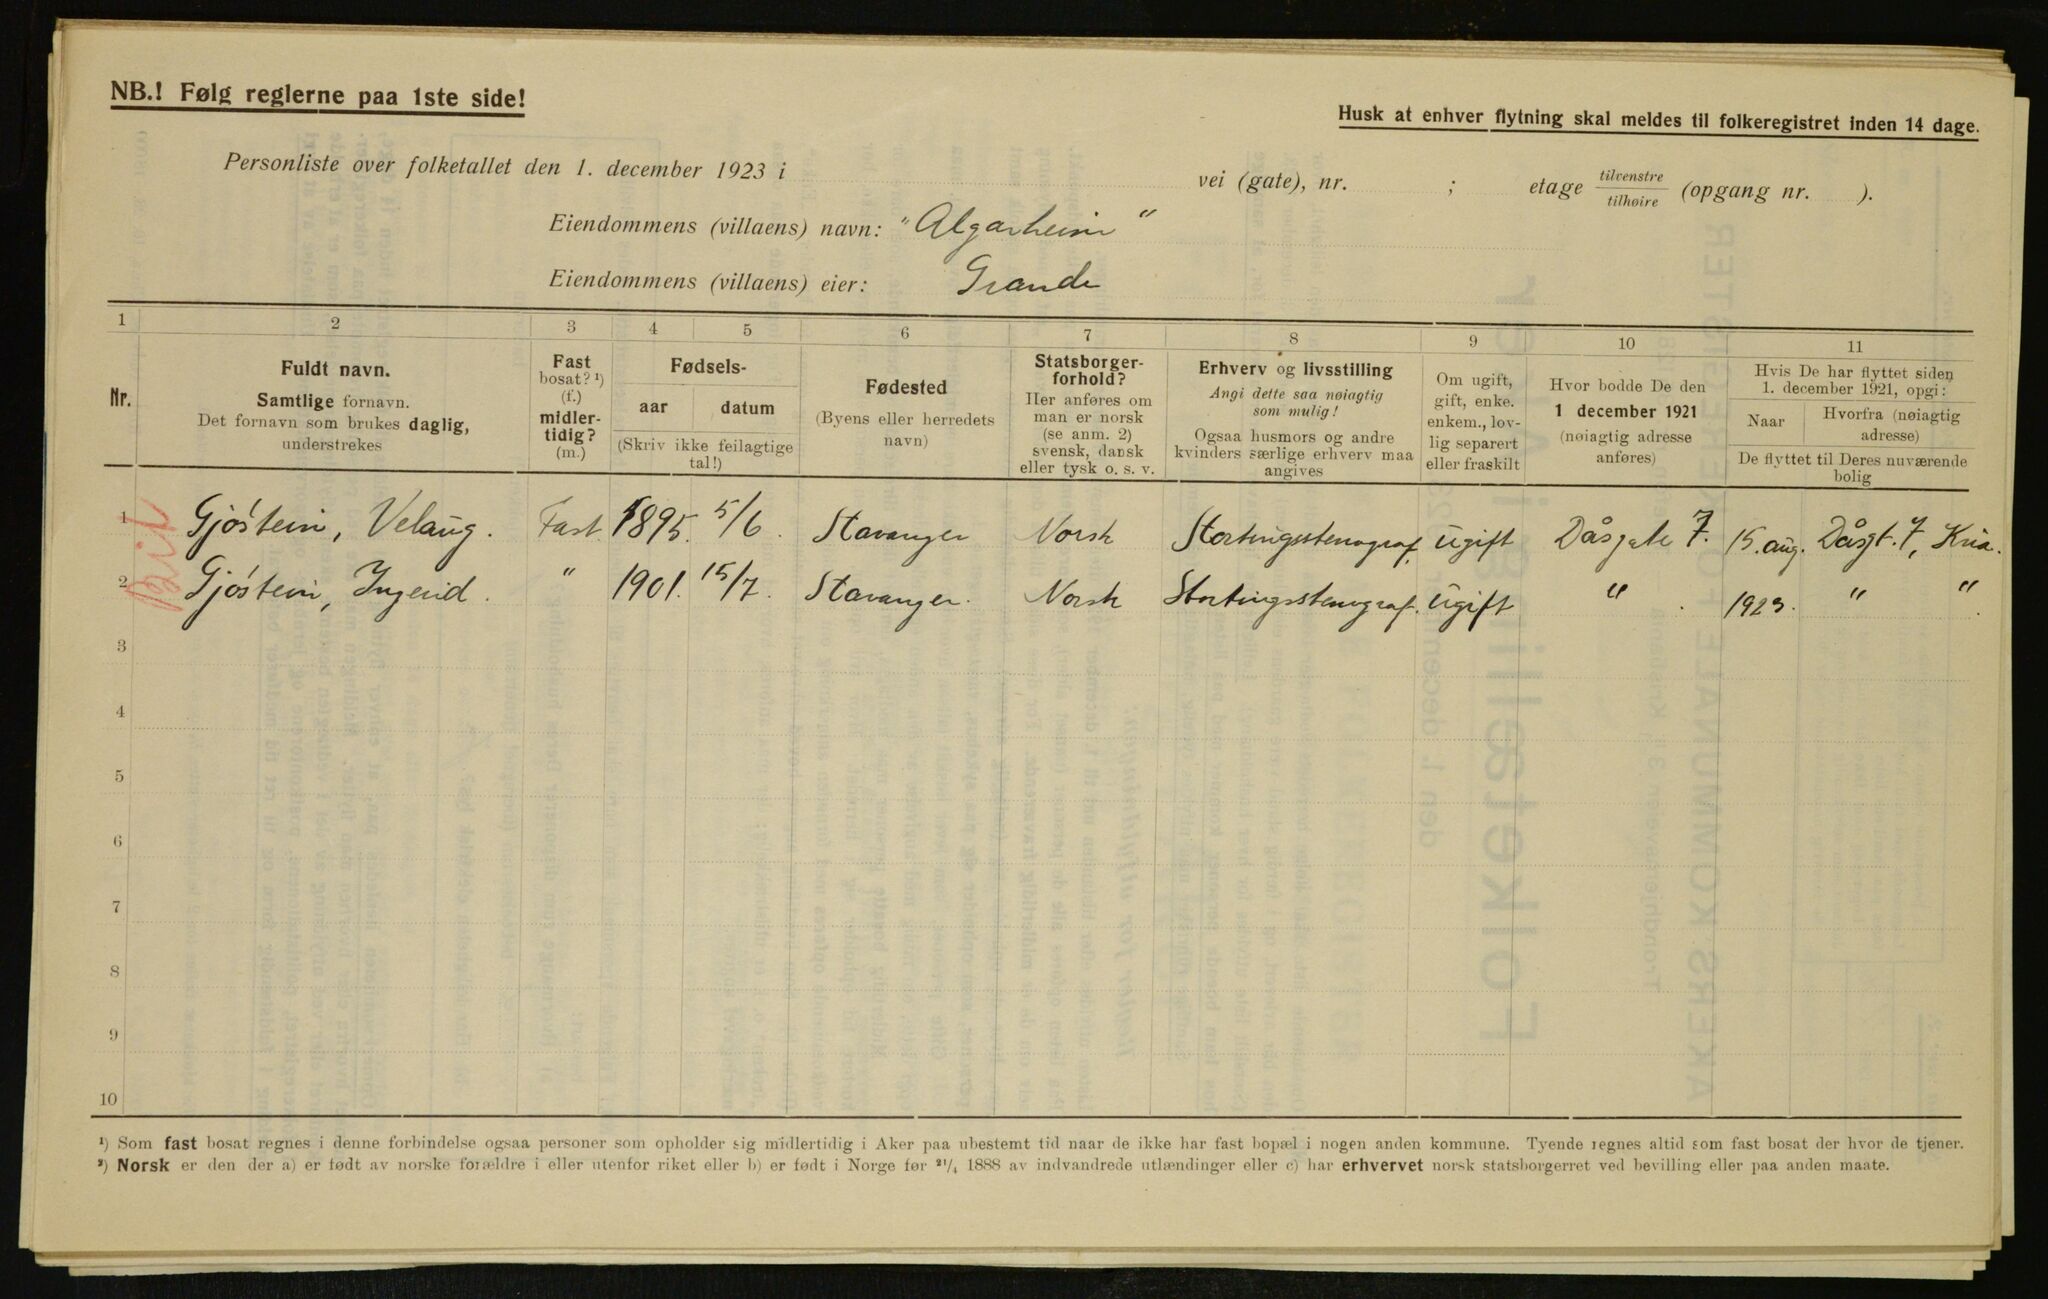 NB.! Følg reglerne paa 1ste side!
Husk at enhver flytning skal meldes til folkeregistret inden 14 dage.
Personliste over folketallet den 1. december 1923 i vei (gate), nr. ; etage tilvenstre tilhøire (opgang nr. ).
Eiendommens (villaens) navn: "Algarheim"
Eiendommens (villaens) eier: Grande
1 2 3 4 5 6 7 8 9 10 11
Nr.
Fuldt navn.
Samtlige fornavn.
Det fornavn som brukes daglig,
understrekes
Fast
bosat? ¹)
(f.)
midler-
tidig?
(m.)
Fødsels-
aar datum
(Skriv ikke feilagtige
tal!)
Fødested
(Byens eller herredets
navn)
Statsborger-
forhold?
Her anføres om
man er norsk
(se anm. 2)
svensk, dansk
eller tysk o. s. v.
Erhverv og livsstilling
Angi dette saa nøiagtig
som mulig!
Ogsaa husmors og andre
kvinders særlige erhverv maa
angives
Om ugift,
gift, enke.
enkem., lov-
lig separert
eller fraskilt
Hvor bodde De den
1 december 1921
(nøiagtig adresse
anføres)
Hvis De har flyttet siden
1. december 1921, opgi:
Naar Hvorfra (nøiagtig
adresse)
De flyttet til Deres nuværende
bolig
1 Gjøstein, Velaug. Fast 1895. 5/6. Stavanger Norsk Stortingsstenograf. ugift Dåsgate 7. 15. aug. Dåsgt. 7, Kria.
2 Gjøstein, Ingerid. " 1901. 15/7. Stavanger. Norsk Stortingsstenograf. ugift " 1923. " "
3
4
5
6
7
8
9
10
¹) Som fast bosat regnes i denne forbindelse ogsaa personer som opholder sig midlertidig i Aker paa ubestemt tid naar de ikke har fast bopæl i nogen anden kommune. Tyende regnes altid som fast bosat der hvor de tjener.
²) Norsk er den der a) er født av norske forældre i eller utenfor riket eller b) er født i Norge før 21/4 1888 av indvandrede utlændinger eller c) har erhvervet norsk statsborgerret ved bevilling eller paa anden maate.